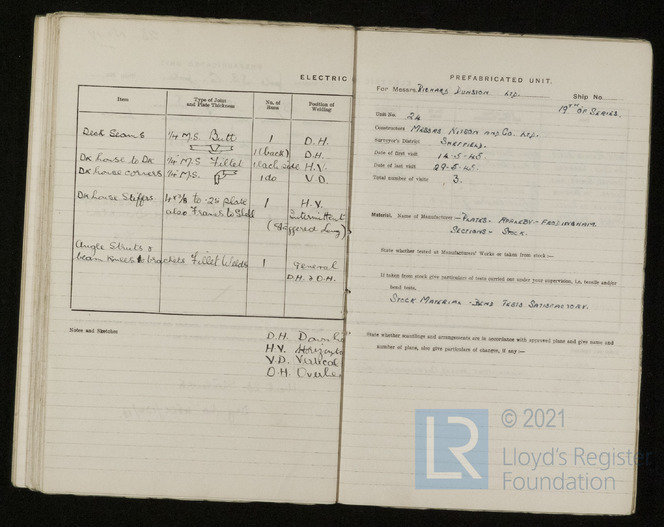 ELECTRIC
Item
Type of Joint and Plate Thickness
No. of Runs
Position of Welding
Deck Seams 1/4 M.S. Butt 1 D.H.
1 (back) D.H.
Dk house to Dk 1/4 M.S. Fillet 1 each side H.V.
Dk house corners 1/4 M.S. 1 do V.D.
Dk house Stiffrs to .25 plate 1 H.V.
also Frames to Shell Intermittent
(Staggered Long)
Angle Struts &
beam knees & brackets Fillet Welds 1 general
D.H. & O.H.
Notes and Sketches
D.H. Downh
H.V. Horizonta
V.D. Vertical
O.H. Overhe
PREFABRICATED UNIT.
For Messrs. RICHARD DUNSTON LTD. Ship No.
19TH OF SERIES.
Unit No. 24
Constructors MESSRS NEWTON AND CO. LTD.
Surveyor's District SHEFFIELD.
Date of first visit 14-5-45.
Date of last visit 29-5-45.
Total number of visits 3.
Material. Name of Manufacturer :- PLATES- APPLEBY-FRODINGHAM.
SECTIONS- STOCK.
State whether tested at Manufacturers' Works or taken from stock :-
If taken from stock give particulars of tests carried out under your supervision, i.e. tensile and/or
bend tests.
STOCK MATERIAL - BEND TESTS SATISFACTORY.
State whether scantlings and arrangements are in accordance with approved plans and give names and
number of plans, also give particulars of changes, if any :-
© 2021
LR
Lloyd's Register
Foundation